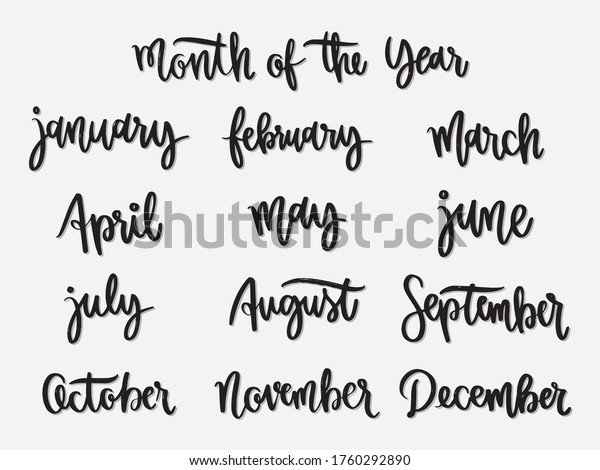 month of the Year
january february march
April may june
july August September
October November December
shutterstock
shutterstock.com · 1760292890